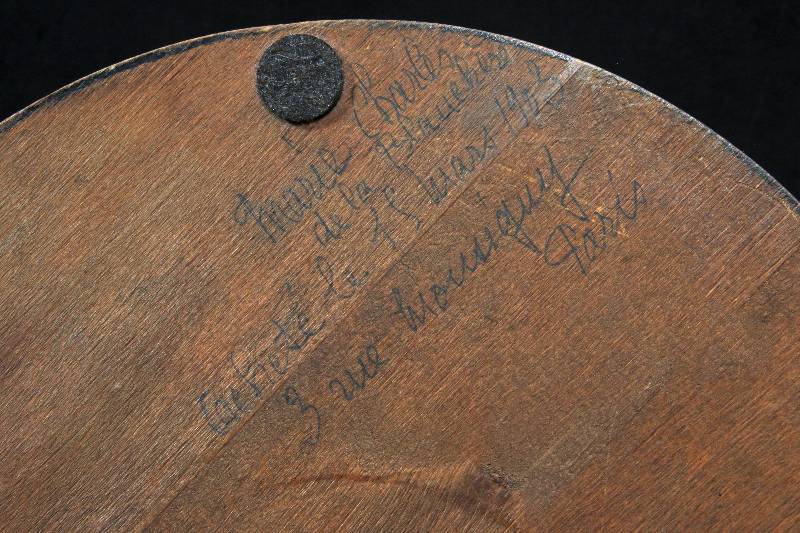 Marie Charles
de la Blanchie
acheté le 15 mars 1902
3 rue Monsigny
Paris